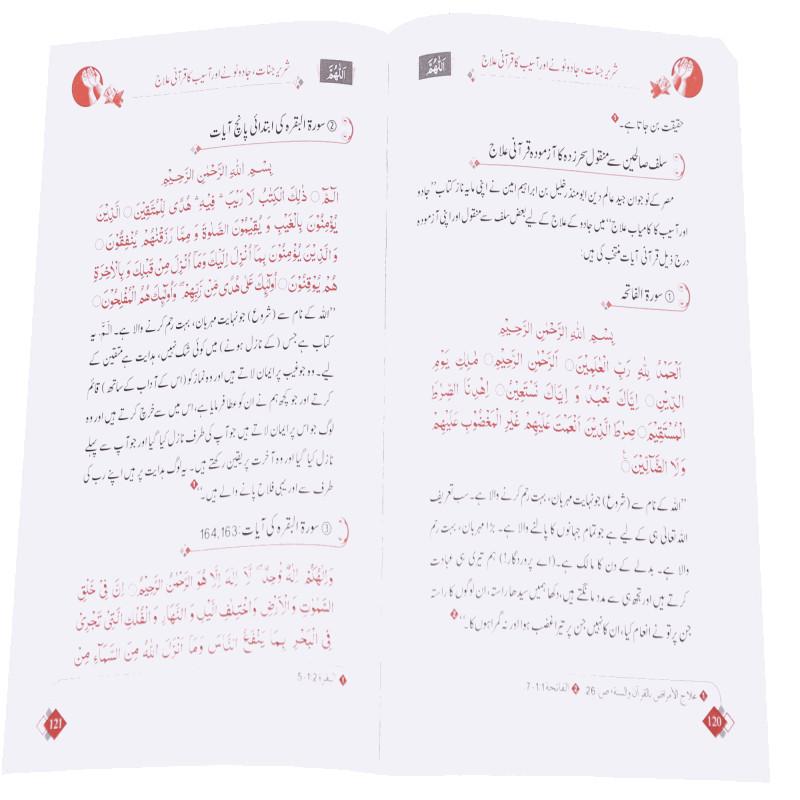 شریر جنات، جادو ٹونے اور آسیب کا قرآنی علاج
اَللّٰهُمَّ
حقیقت بن جاتا ہے۔ 1
سلف صالحین سے منقول سحر زدہ کا آزمودہ قرآنی علاج
مصر کے نوجوان جید عالم دین ابومنذر خلیل بن ابراہیم امین نے اپنی مایہ ناز کتاب ”جادو
اور آسیب کا کامیاب علاج“ میں جادو کے علاج کے لیے بعض سلف سے منقول اور اپنی آزمودہ
درج ذیل قرآنی آیات منتخب کی ہیں:
① سورۃ الفاتحہ
بِسْمِ اللّٰهِ الرَّحْمٰنِ الرَّحِيْمِ
اَلْحَمْدُ لِلّٰهِ رَبِّ الْعٰلَمِيْنَ ۝ الرَّحْمٰنِ الرَّحِيْمِ ۝ مٰلِكِ يَوْمِ
الدِّيْنِ ۝ اِيَّاكَ نَعْبُدُ وَ اِيَّاكَ نَسْتَعِيْنُ ۝ اِهْدِنَا الصِّرَاطَ
الْمُسْتَقِيْمَ ۝ صِرَاطَ الَّذِيْنَ اَنْعَمْتَ عَلَيْهِمْ غَيْرِ الْمَغْضُوْبِ عَلَيْهِمْ
وَلَا الضَّآلِّيْنَ ۝
”اللہ کے نام سے (شروع) جو نہایت مہربان، بہت رحم کرنے والا ہے۔ سب تعریف
اللہ تعالیٰ ہی کے لیے ہے جو تمام جہانوں کا پالنے والا ہے۔ بڑا مہربان، بہت رحم
والا ہے۔ بدلے کے دن کا مالک ہے۔ (اے پروردگار!) ہم تیری ہی عبادت
کرتے ہیں اور تجھ ہی سے مدد مانگتے ہیں، دکھا ہمیں سیدھا راستہ، ان لوگوں کا راستہ
جن پر تو نے انعام کیا، ان کا نہیں جن پر تیرا غضب ہوا اور نہ گمراہوں کا۔“ 2
1 علاج الأمراض بالقرآن والسنة، ص: 26 2 الفاتحة 1:1-7
120
شریر جنات، جادو ٹونے اور آسیب کا قرآنی علاج
اَللّٰهُمَّ
② سورۃ البقرہ کی ابتدائی پانچ آیات
بِسْمِ اللّٰهِ الرَّحْمٰنِ الرَّحِيْمِ
الٓمّٓ ۝ ذٰلِكَ الْكِتٰبُ لَا رَيْبَ ۛ فِيْهِ ۛ هُدًى لِّلْمُتَّقِيْنَ ۝ الَّذِيْنَ
يُؤْمِنُوْنَ بِالْغَيْبِ وَ يُقِيْمُوْنَ الصَّلٰوةَ وَ مِمَّا رَزَقْنٰهُمْ يُنْفِقُوْنَ ۝
وَ الَّذِيْنَ يُؤْمِنُوْنَ بِمَآ اُنْزِلَ اِلَيْكَ وَمَآ اُنْزِلَ مِنْ قَبْلِكَ وَ بِالْاٰخِرَةِ
هُمْ يُوْقِنُوْنَ ۝ اُولٰٓئِكَ عَلٰى هُدًى مِّنْ رَّبِّهِمْ وَ اُولٰٓئِكَ هُمُ الْمُفْلِحُوْنَ ۝
”اللہ کے نام سے (شروع) جو نہایت مہربان، بہت رحم کرنے والا ہے۔ الٓمّٓ، یہ
کتاب ہے جس (کے نازل ہونے) میں کوئی شک نہیں، ہدایت ہے متقین کے
لیے۔ وہ جو غیب پر ایمان لاتے ہیں اور وہ نماز کو (اس کے آداب کے ساتھ) قائم
کرتے اور جو کچھ ہم نے ان کو عطا فرمایا ہے، اس میں سے خرچ کرتے ہیں اور وہ
لوگ جو اس پر ایمان لاتے ہیں جو آپ کی طرف نازل کیا گیا اور جو آپ سے پہلے
نازل کیا گیا اور وہ آخرت پر یقین رکھتے ہیں۔ یہ لوگ ہدایت پر ہیں اپنے رب کی
طرف سے اور یہی فلاح پانے والے ہیں۔“ 1
③ سورۃ البقرہ کی آیات: 164,163
وَ اِلٰهُكُمْ اِلٰهٌ وَّاحِدٌ ۚ لَآ اِلٰهَ اِلَّا هُوَ الرَّحْمٰنُ الرَّحِيْمُ ۝ اِنَّ فِيْ خَلْقِ
السَّمٰوٰتِ وَ الْاَرْضِ وَ اخْتِلَافِ الَّيْلِ وَ النَّهَارِ وَ الْفُلْكِ الَّتِيْ تَجْرِيْ
فِي الْبَحْرِ بِمَا يَنْفَعُ النَّاسَ وَمَآ اَنْزَلَ اللّٰهُ مِنَ السَّمَآءِ مِنْ
1 البقرة 1:2-5
121